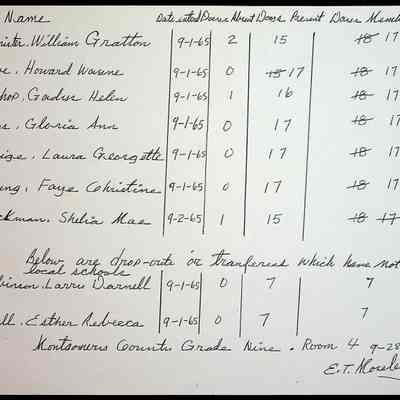 Name Date ented Days Absent Days Present Days Membe
nister. William Gratton 9-1-65 2 15 18 17
Howard Wayne 9-1-65 0 15 17 18 17
shop, Helen 9-1-65 1 16 18 17
Gloria Ann 9-1-65 0 17 18 17
Laura Georgette 9-1-65 0 17 18 17
ung, Faye Christine 9-1-65 0 17 18 17
ckman, Shelia Mae 9-2-65 1 15 18 17
Below are drop-outs or tranferees which have not
local schools
binson, Larry Darnell 9-1-65 0 7 7
ll, Esther Rebecca 9-1-65 0 7 7
Montgomery County Grade Nine. Room 4 9-28
E.T.